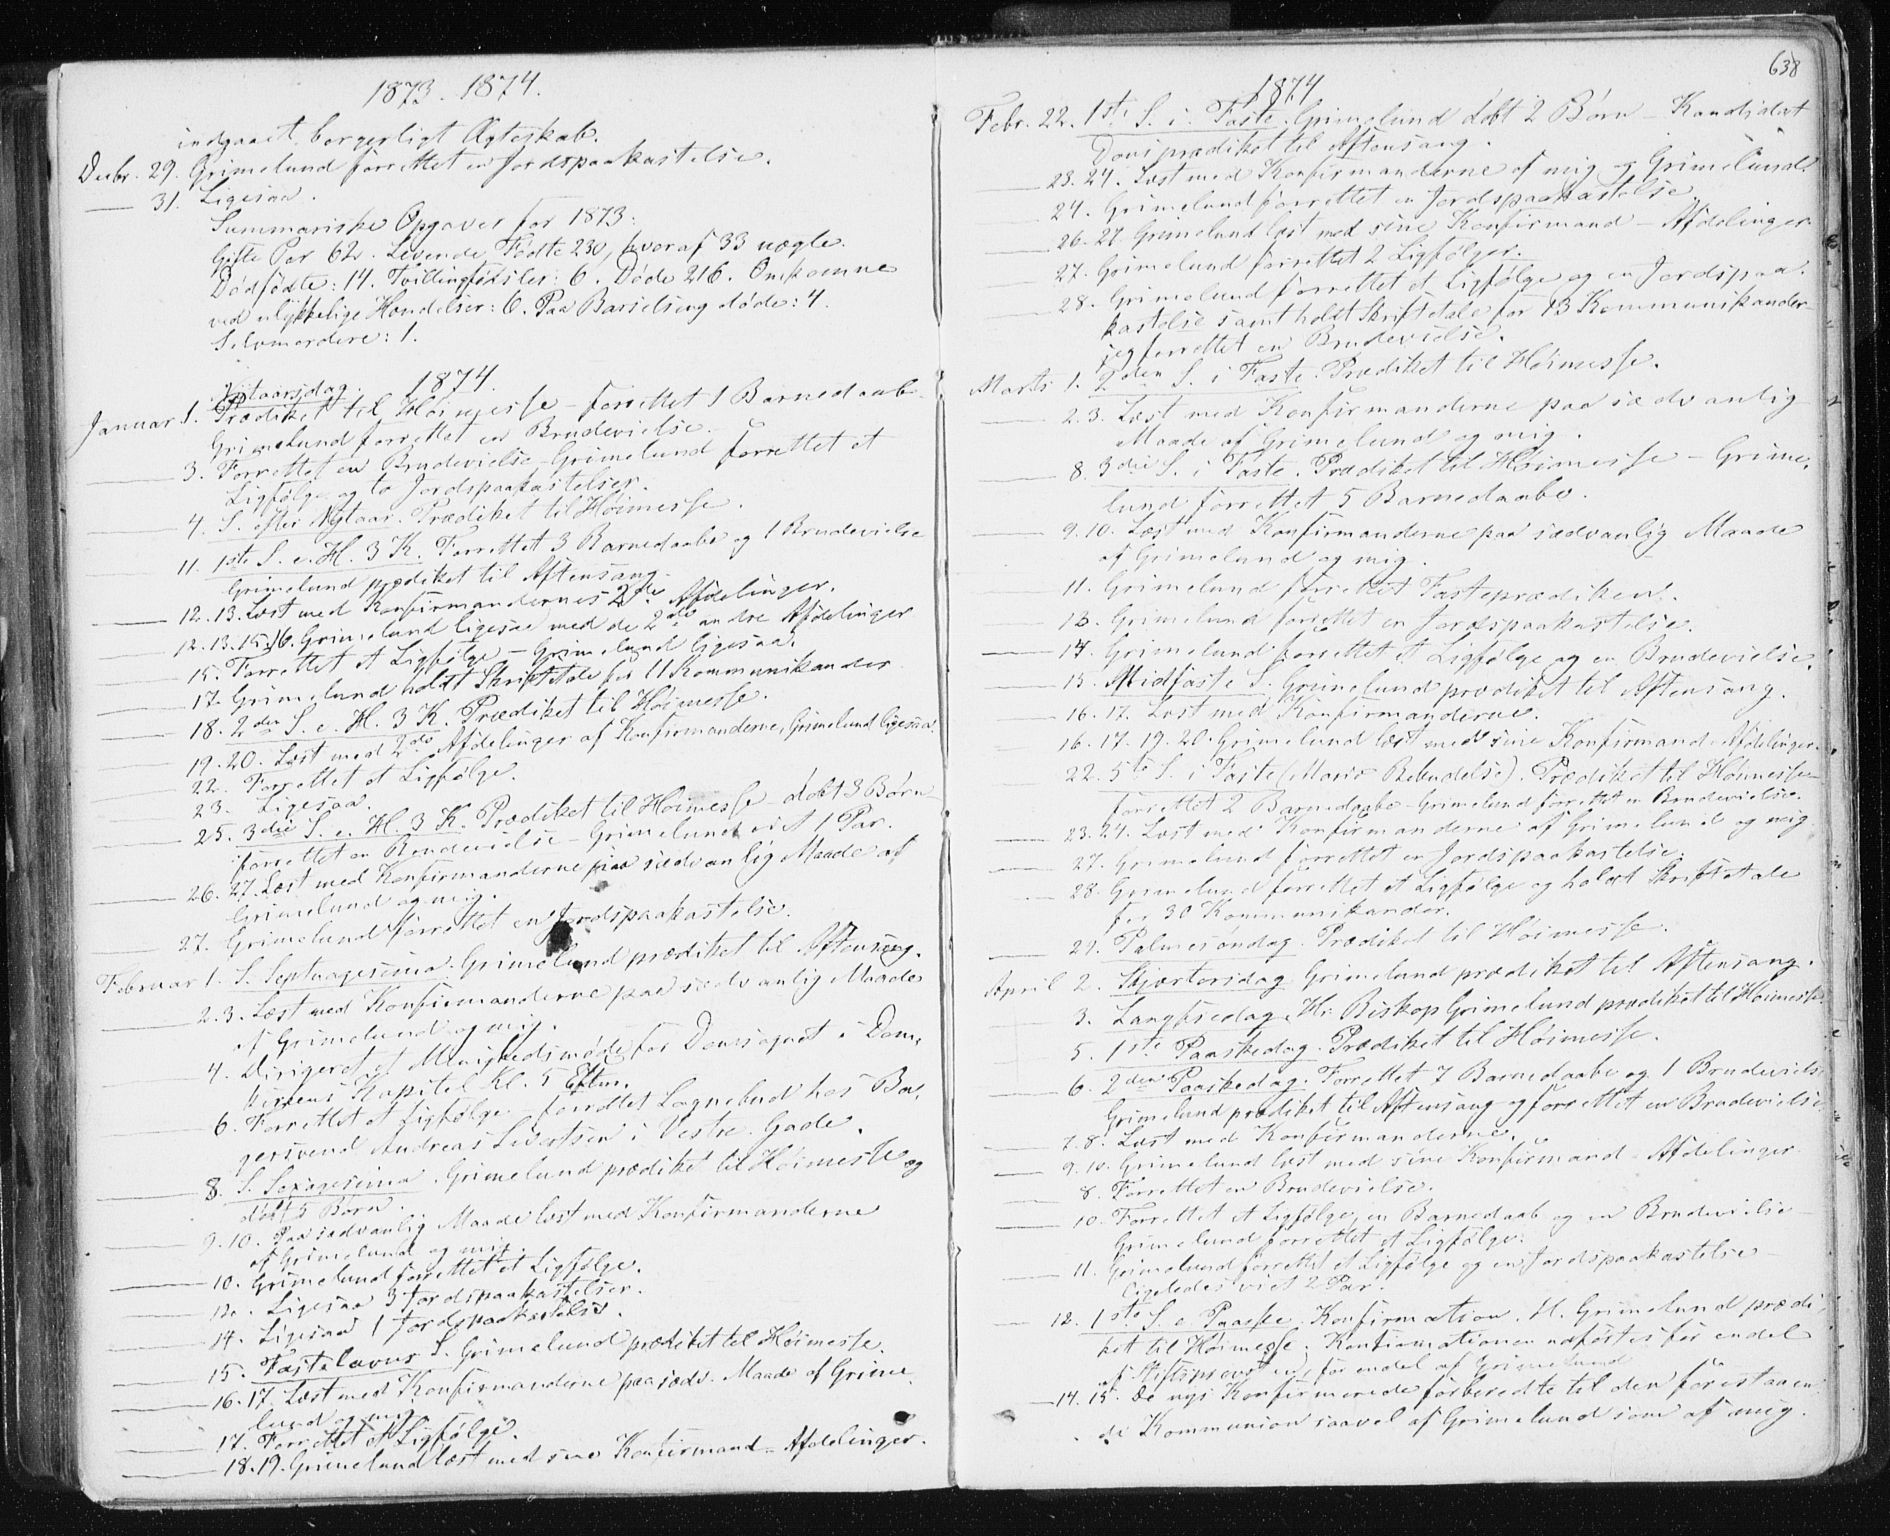 1873. 1874.
indgaaet borgerligt Ægteskab.
Decbr. 29. Grimelund forrettet en Jordspaakastelse.
31. Ligesaa.
Summariske Opgaver for 1873:
Gifte Par 62. Levende Fødte 230, hvoraf 33 uægte.
Dødfødte: 14. Tvillingfødsler: 6. Døde 216. Omkomne
ved ulykkelige Hændelser: 6. Paa Barselseng døde: 4.
Selvmordere: 1.
1874.
Nytaarsdag.
Januar 1. Prædiket til Høimesse - forrettet 1 Barnedaab
Grimelund forrettet en Brudevielse.
3. Forrettet en Brudevielse - Grimelund forrettet et
Ligfølge og to Jordspaakastelser.
4. S. efter Nytaar. Prædiket til Høimesse.
11. 1ste S. e. H. 3 K. Forrettet 3 Barnedaabe og 1 Brudevielse
Grimelund prædiket til Aftensang.
12. 13. Læst med Konfirmandernes 2de Afdelinger.
12. 13. 15. 16. Grimelund ligesaa med de 2de andre Afdelinger
15. Forrettet et Ligfølge - Grimelund ligesaa.
17. Grimelund holdt Skriftetale for 11 Kommunikander
18. 2den S. e. H. 3 K. Prædiket til Høimesse.
19. 20. Læst med 2de Afdelinger af Konfirmanderne, Grimelund ligesaa.
22. Forrettet et Ligfølge.
23. Ligesaa.
25. 3die S. e. H. 3 K. Prædiket til Høimesse - døbt 3 Børn
forrettet en Brudevielse - Grimelund viet 1 Par.
26. 27. Læst med Konfirmanderne paa sædvanlig Maade af
Grimelund og mig.
27. Grimelund forrettet en Jordspaakastelse.
Februar 1. S. Septuagesima. Grimelund prædiket til Aftensang.
2. 3. Læst med Konfirmanderne paa sædvanlig Maade
af Grimelund og mig.
4. Dirigeret et Menighedsmøde for Domsognet i Dom-
kirkens Kapitel Kl. 5 Eftm.
6. Forrettet et Ligfølge - forrettet Sognebud hos Bor-
gersvend Andreas Sivertsen i Vestre Gade.
8. S. Sexagesima. Grimelund prædiket til Høimesse og
døbt 5 Børn.
9. 10. Paa sædvanlig Maade læst med Konfirmanderne
af Grimelund og mig.
10. Grimelund forrettet et Ligfølge.
12. Ligesaa 3 Jordspaakastelser.
14. Ligesaa 1 Jordspaakastelse.
15. Fastelavns S. Grimelund prædiket til Høimesse.
16. 17. Læst med Konfirmanderne paa sædv. Maade af Grime-
lund og mig.
17. Forrettet et Ligfølge.
18. 19. Grimelund læst med sine Konfirmand-Afdelinger.
638
1874
Febr. 22. 1ste S. i Faste. Grimelund døbt 2 Børn - Kandidat
Dons prædiket til Aftensang.
23. 24. Læst med Konfirmanderne af mig og Grimelund.
24. Grimelund forrettet en Jordspaakastelse
26. 27. Grimelund læst med sine Konfirmand-Afdelinger
27. Grimelund forrettet 2 Ligfølger.
28. Grimelund forrettet et Ligfølge og en Jordspaa-
kastelse samt holdt Skriftetale for 13 Kommunikander -
jeg forrettet en Brudevielse.
Marts 1. 2den S. i Faste. Prædiket til Høimesse.
2. 3. Læst med Konfirmanderne paa sædvanlig
Maade af Grimelund og mig.
8. 3die S. i Faste. Prædiket til Høimesse - Grime-
lund forrettet 5 Barnedaabe.
9. 10. Læst med Konfirmanderne paa sædvanlig Maade
af Grimelund og mig.
11. Grimelund forrettet Fasteprædiken.
13. Grimelund forrettet en Jordspaakastelse.
14. Grimelund forrettet et Ligfølge og en Brudevielse.
15. Midfaste S. Grimelund prædiket til Aftensang.
16. 17. Læst med Konfirmanderne.
16. 17. 19. 20. Grimelund læst med sine Konfirmand-Afdelinger.
22. 5te S. i Faste (Mariæ Bebudelse). Prædiket til Høimesse -
forrettet 2 Barnedaabe - Grimelund forrettet en Brudevielse.
23. 24. Læst med Konfirmanderne af Grimelund og mig
27. Grimelund forrettet en Jordspaakastelse.
28. Grimelund forrettet et Ligfølge og holdt Skriftetale
for 30 Kommunikander.
29. Palmesøndag. Prædiket til Høimesse.
April 2. Skjærtorsdag Grimelund prædiket til Aftensang.
3. Langfredag. Hr. Biskop Grimelund prædiket til Høimesse.
5. 1ste Paaskedag. Prædiket til Høimesse.
6. 2den Paaskedag. Forrettet 7 Barnedaabe og 1 Brudevielse
Grimelund prædiket til Aftensang og forrettet en Brudevielse
7. 8. Læst med Konfirmanderne.
9. 10. Grimelund læst med sine Konfirmand-Afdelinger.
8. Forrettet en Brudevielse.
10. Forrettet et Ligfølge, en Barnedaab og en Brudevielse -
Grimelund forrettet et Ligfølge.
11. Grimelund forrettet et Ligfølge og en Jordspaakastelse -
Ligeledes viet 2 Par.
12. 1ste S. e. Paaske. Konfirmation. H. Grimelund prædi-
ket til Høimesse. Konfirmationen udførtes for endel
af Stiftsprovsten, for endel af Grimelund
14. 15. De nys Konfirmerede forberedte til den forestaaen-
de Kommunion saavel af Grimelund som af mig.